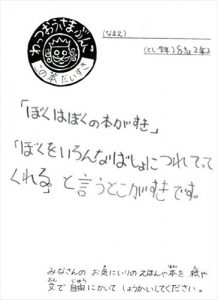 わっつおうさまぶん
この本だいすき
(なまえ)
「ぼくはぼくの本がすき」
「ぼくをいろんなばしょにつれてって
くれる」と言うとこがすきです。
みなさんの お気にいりのえほんや本を 絵や
文で自由にかいて しょうかいしてください。